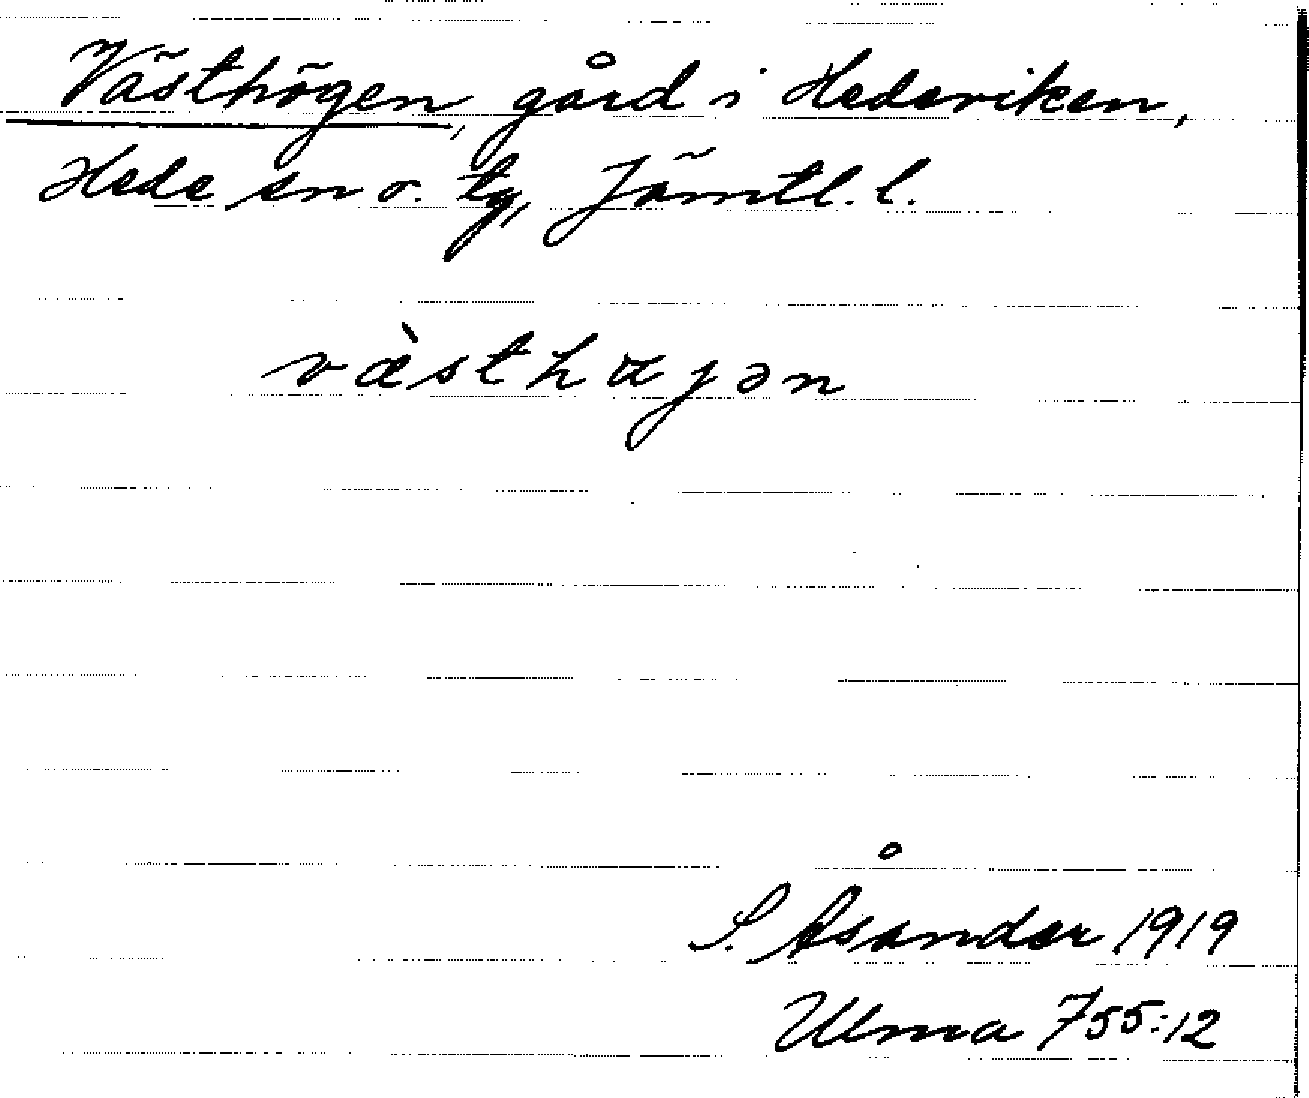 Västhögen, gård i Hedeviken,
Hede sn o. tg, Jämtl. l.
væ̀sthαȷən
S. Åsander 1919
Ulma 755:12